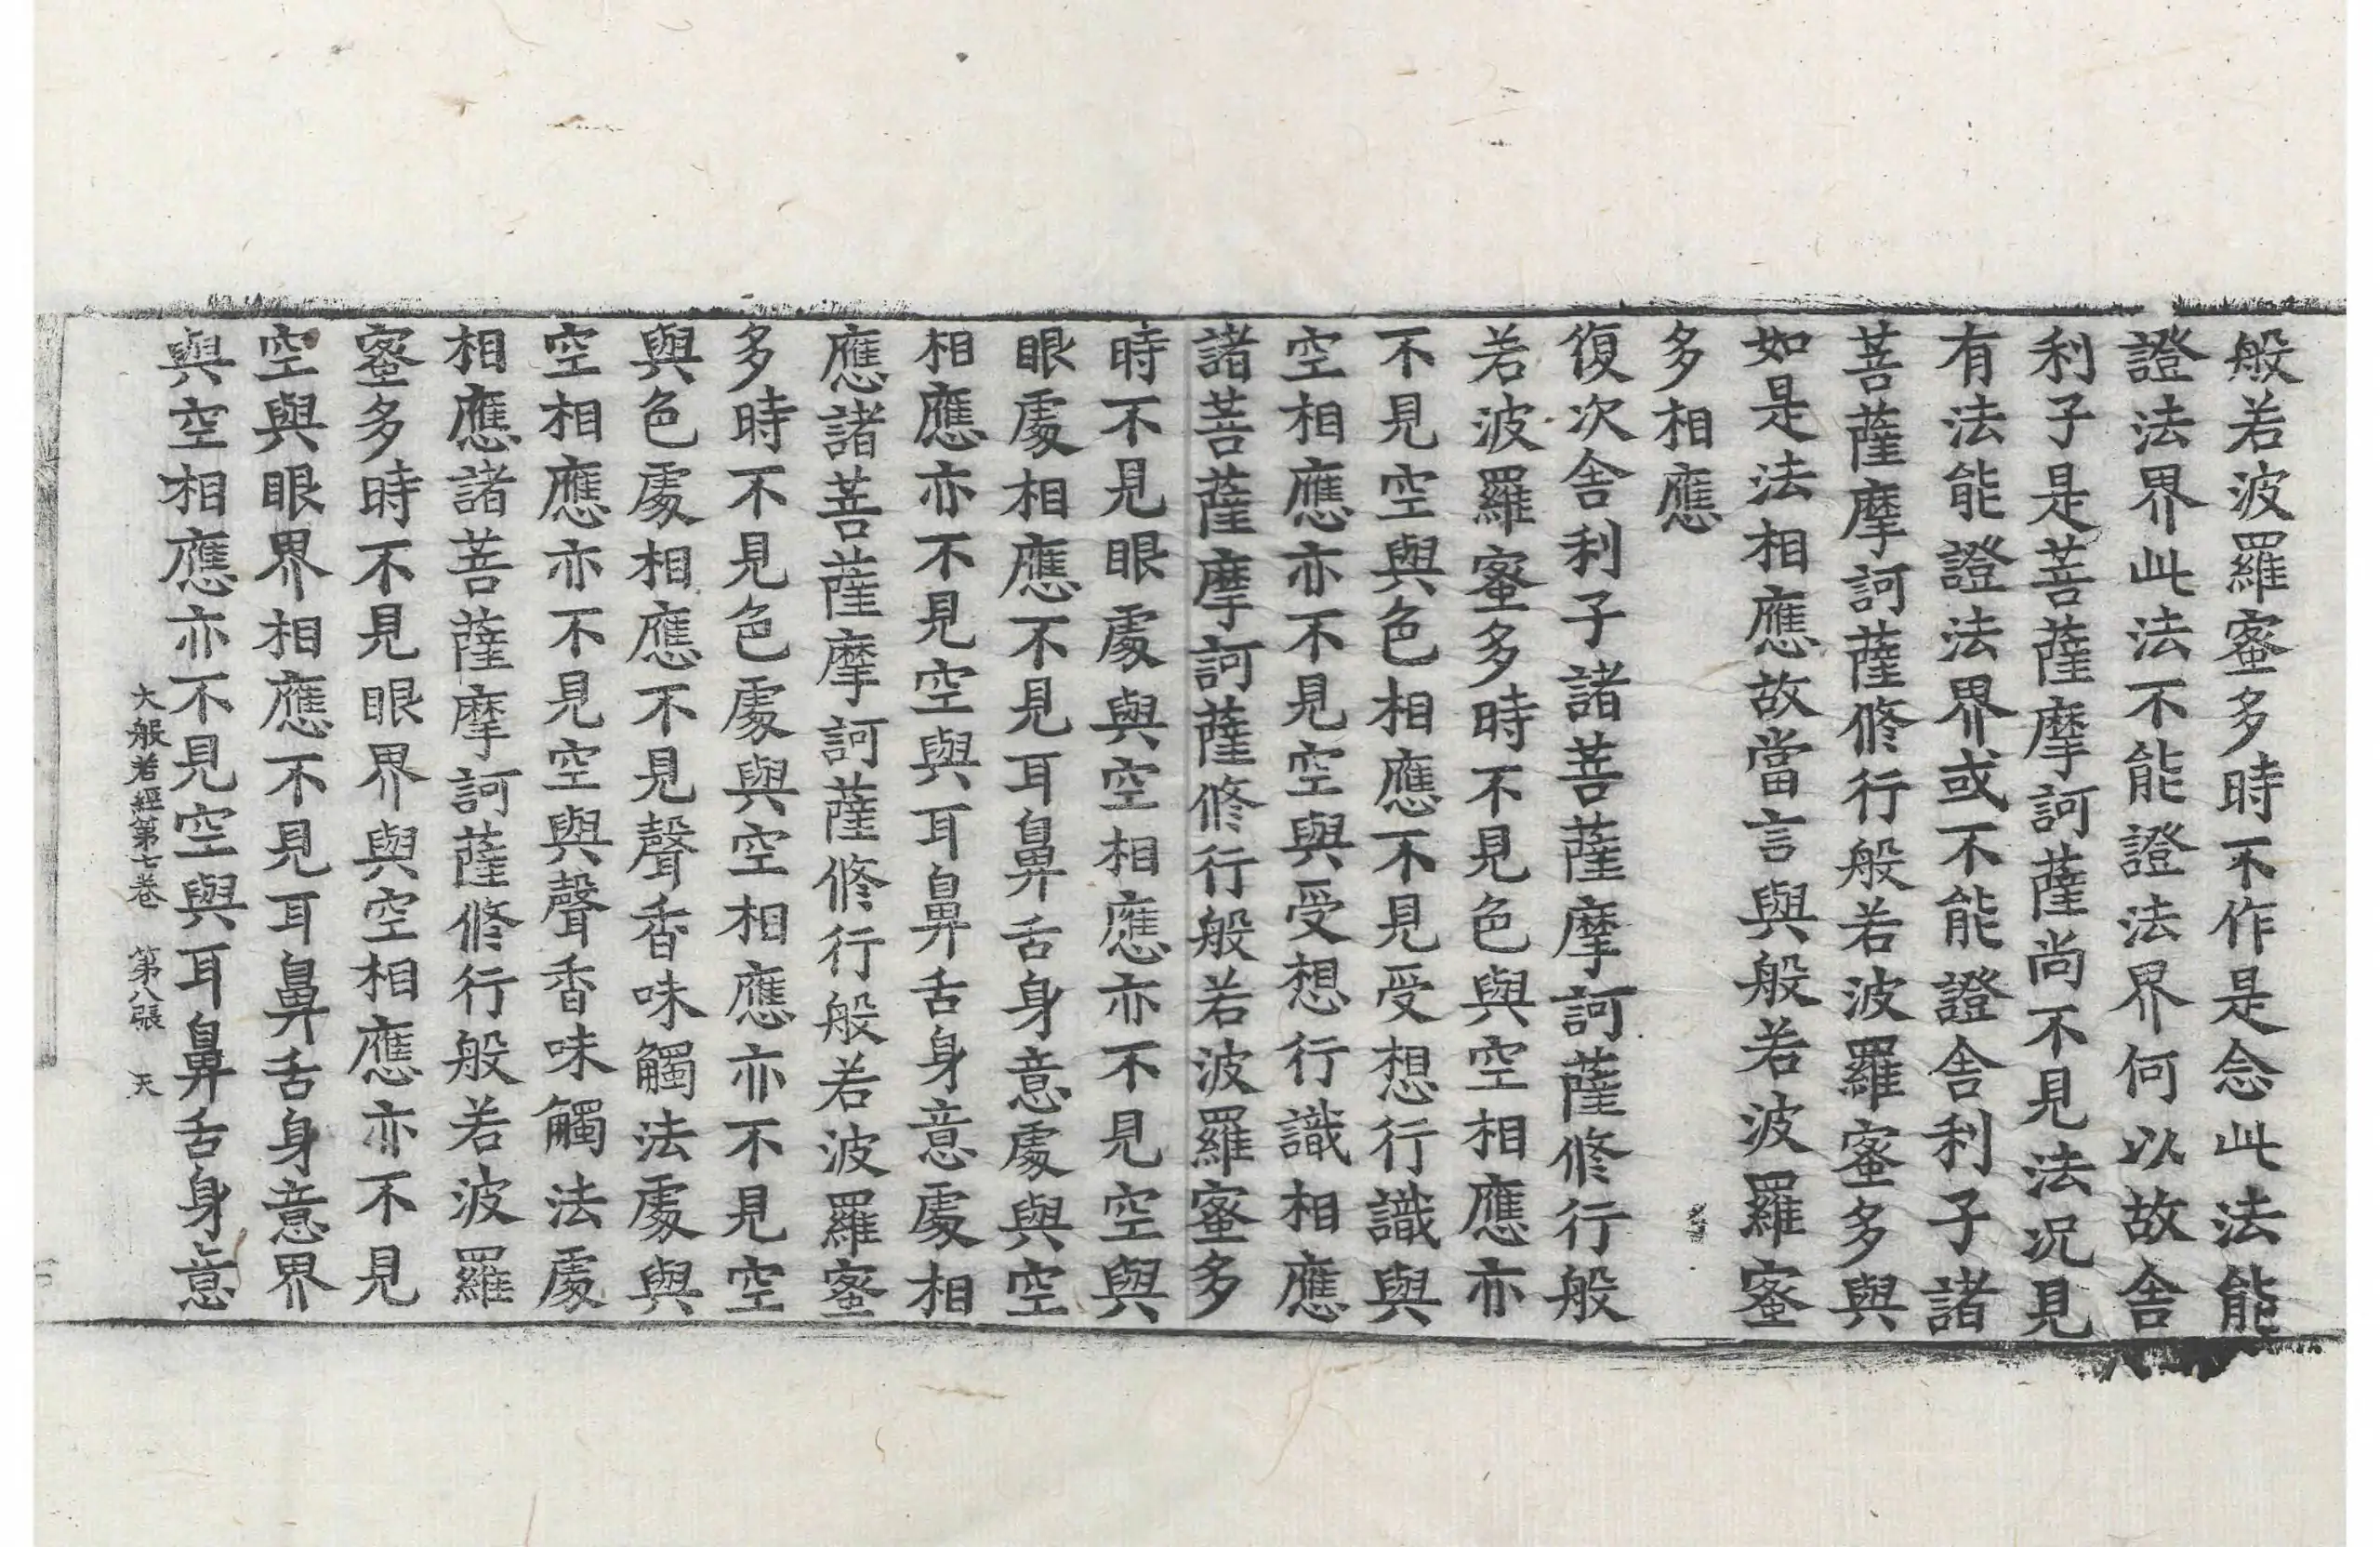 般若波羅蜜多時不作是念此法能
證法界此法不能證法界何以故舍
利子是菩薩摩訶薩尚不見法況見
有法能證法界或不能證舍利子諸
菩薩摩訶薩修行般若波羅蜜多與
如是法相應故當言與般若波羅蜜
多相應
復次舍利子諸菩薩摩訶薩修行般
若波羅蜜多時不見色與空相應亦
不見空與色相應不見受想行識與
空相應亦不見空與受想行識相應
諸菩薩摩訶薩修行般若波羅蜜多
時不見眼處與空相應亦不見空與
眼處相應不見耳鼻舌身意處與空
相應亦不見空與耳鼻舌身意處相
應諸菩薩摩訶薩修行般若波羅蜜
多時不見色處與空相應亦不見空
與色處相應不見聲香味觸法處與
空相應亦不見空與聲香味觸法處
相應諸菩薩摩訶薩修行般若波羅
蜜多時不見眼界與空相應亦不見
空與眼界相應不見耳鼻舌身意界
與空相應亦不見空與耳鼻舌身意
大般若經第七卷 第八張 天